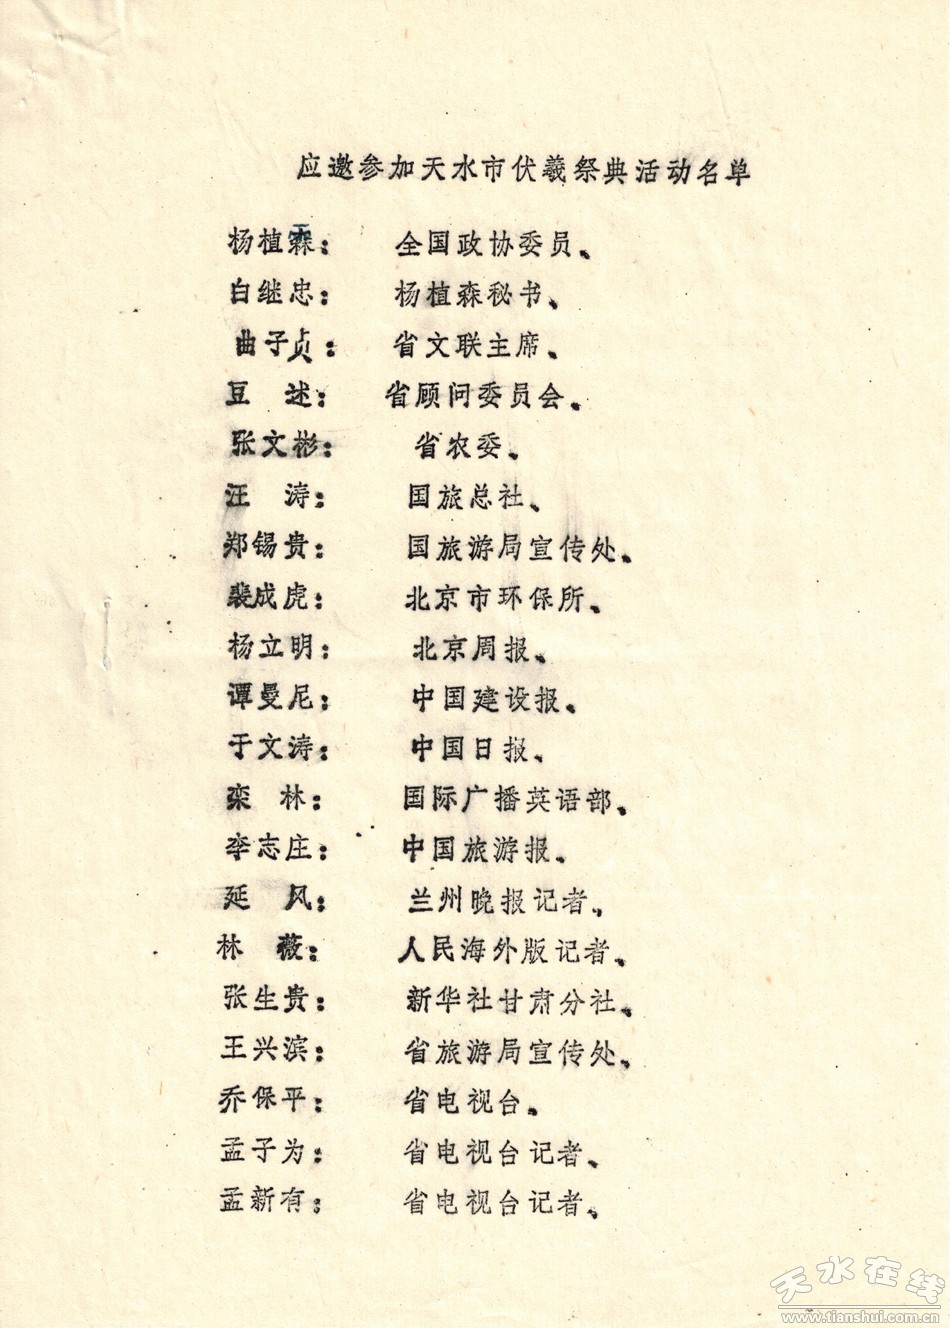 应邀参加天水市伏羲祭典活动名单
杨植霖： 全国政协委员、
白继忠： 杨植森秘书、
曲子贞： 省文联主席、
豆 述： 省顾问委员会、
张文彬： 省农委、
汪 涛： 国旅总社、
郑锡贵： 国旅游局宣传处、
裴成虎： 北京市环保所、
杨立明： 北京周报、
谭曼尼： 中国建设报、
于文涛： 中国日报、
栾 林： 国际广播英语部、
李志庄： 中国旅游报、
延 风： 兰州晚报记者、
林 薇： 人民海外版记者、
张生贵： 新华社甘肃分社、
王兴滨： 省旅游局宣传处、
乔保平： 省电视台、
孟子为： 省电视台记者、
孟新有： 省电视台记者、
天水在线
www.tianshui.com.cn